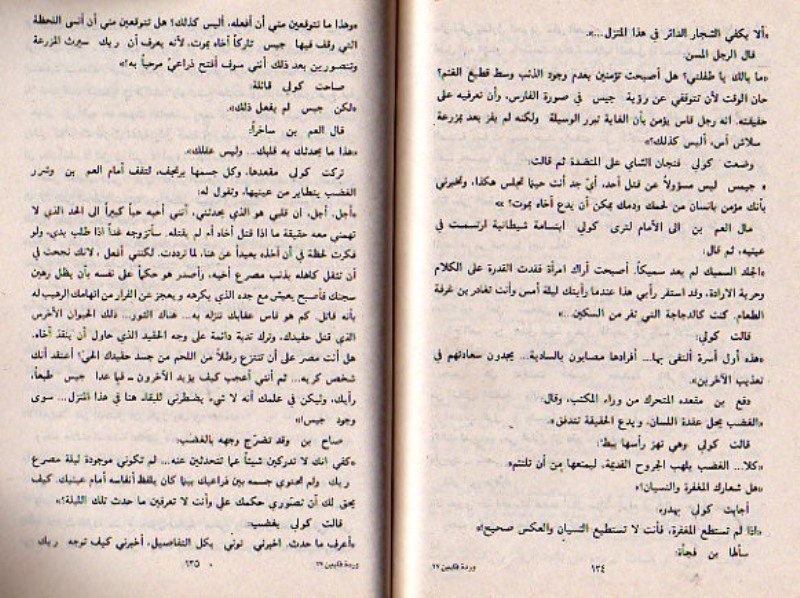 «ألا يكفي الشجار الدائر في هذا المنزل...».
قال الرجل المسن:
«ما بالك يا طفلتي؟ هل أصبحت تؤمنين بعدم وجود الذئب وسط قطيع الغنم؟
حان الوقت لأن تتوقفي عن رؤية جيس في صورة الفارس، وأن تعرفيه على
حقيقته. انه رجل قاس يؤمن بأن الغاية تبرر الوسيلة ولكنه لم يفز بعد بمزرعة
سلاش أس، أليس كذلك؟»
وضعت كولي فنجان الشاي على المنضدة ثم قالت:
« جيمس ليس مسؤولاً عن قتل أحد، أيّ جد أنت حينما تجلس هكذا، وتخبرني
بأنك مؤمن بانسان من لحمك ودمك يمكن أن يدع أخاه يموت؟ »
مال العم بن الى الأمام لترى كولي ابتسامة شيطانية ارتسمت في
عينيه، ثم قال:
«الجلد السميك لم يعد سميكاً. أصبحت أراك امرأة فقدت القدرة على الكلام
وحرية الارادة، وقد استقر رأيي هذا عندما رأيتك ليلة أمس وأنت تغادرين غرفة
الطعام. كنت كالدجاجة التي تفر من السكين...»
قالت كولي:
«هذه أول أسرة ألتقي بها... أفرادها مصابون بالسادية... يجدون سعادتهم في
تعذيب الآخرين».
دفع بن مقعده المتحرك من وراء المكتب، وقال:
«الغضب يحل عقدة اللسان، ويدع الحقيقة تتدفق».
قالت كولي وهي تهز رأسها ببطء:
«كلا... الغضب يلهب الجروح القديمة، ليمنعها من أن تلتئم».
«هل شعارك المغفرة والنسيان؟»
أجابت كولي بهدوء:
«اذا لم تستطع المغفرة، فأنت لا تستطيع النسيان والعكس صحيح!»
سألها بن فجأة:
١٣٤
وردة قايين ٢٧
«وهذا ما تتوقعين مني أن أفعله، أليس كذلك؟ هل تتوقعين مني أن أنسى اللحظة
التي وقف فيها جيس تاركاً أخاه يموت، لأنه يعرف أن ريك سيرث المزرعة
وتتصورين بعد ذلك أنني سوف أفتح ذراعيّ مرحباً به!»
صاحت كولي قائلة:
«لكن جيس لم يفعل ذلك».
قال العم بن ساخراً:
«هذا ما يحدثك به قلبك... وليس عقلك».
تركت كولي مقعدها، وكل جسمها يرتجف، لتقف أمام العم بن وشرر
الغضب يتطاير من عينيها، وتقول له:
«أجل، أجل، ان قلبي هو الذي يحدثني، أنني أحبه حباً كبيراً الى الحد الذي لا
تهمني معه حقيقة ما اذا قتل أخاه أم لم يقتله. سأتزوجه غداً اذا طلب يدي، ولو
فكرت لحظة في أن آخذه بعيداً عن هنا، لما ترددت. لكنني أفعل، لانك نجحت في
أن تثقل كاهله بذنب مصرع أخيه، وأصدر هو حكماً على نفسه بأن يظل رهين
سجنك فأصبح يعيش مع جده الذي يكرهه و يعجز عن الفرار من اتهامك الرهيب له
بأنه قاتل. كم هو قاس عقابك تنزله به... هناك الثور... ذلك الحيوان الأخرس
الذي قتل حفيدك، وترك ندبة دائمة على وجه الحفيد الذي حاول أن ينقذ أخاه.
هل أنت مصر على أن تنتزع رطلاً من اللحم من جسد حفيدك الحيّ! أعتقد أنك
شخص كريه... ثم أنني أعجب كيف يؤيد الآخرون ــ فيما عدا جيس طبعاً،
رأيك، وليكن في علمك أنه لا شيء يضطرني للبقاء هنا في هذا المنزل... سوى
وجود جيس!»
صاح بن وقد تضرّج وجهه بالغضب:
«كفى انك لا تدركين شيئاً عما تتحدثين عنه... لم تكوني موجودة ليلة مصرع
ريك ولم تحتوي جسمه بين ذراعيك بينما كان يلفظ أنفاسه أمام عينيك. كيف
يحق لك أن تصّوري حكمك علي وأنت لا تعرفين ما حدث تلك الليلة؟»
قالت كولي بغضب:
«أعرف ما حدث. اخبرني توني بكل التفاصيل، أخبرني كيف توجه ريك
وردة قايين ٢٧
١٣٥